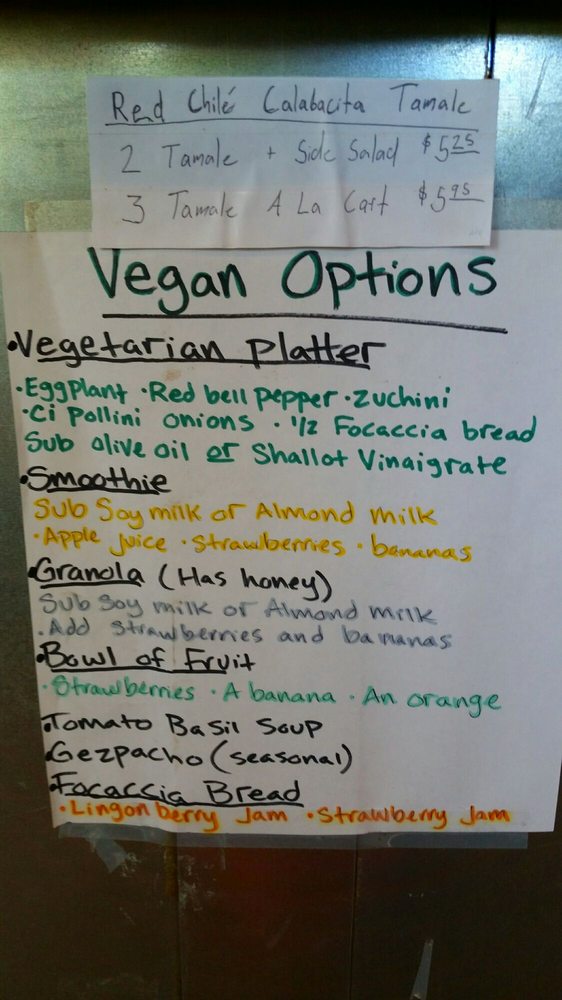 Red Chilé Calabacita Tamale
2 Tamale + Side Salad $5.25
3 Tamale A La Cart $5.95
Vegan Options
•Vegetarian platter
•Eggplant •Red bell pepper •zuchini
•Ci Pollini onions • 1/2 Focaccia bread
Sub olive oil or Shallot Vinaigrate
•Smoothie
Sub Soy milk or Almond milk
•Apple juice •Strawberries • bananas
•Granola (Has honey)
Sub Soy milk or Almond milk
•Add strawberries and bananas
•Bowl of Fruit
•Strawberries • A banana • An orange
•Tomato Basil Soup
•Gezpacho (seasonal)
•Focaccia Bread
•Lingonberry Jam •Strawberry Jam